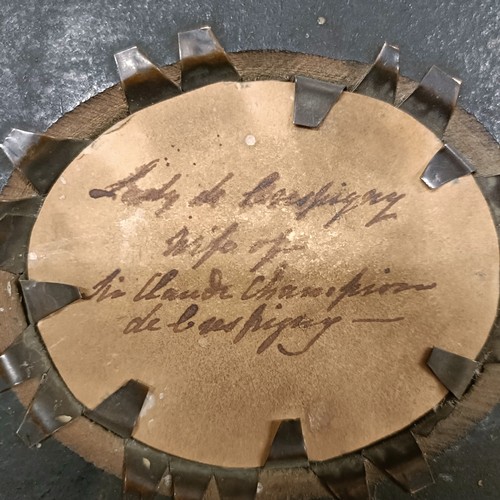 Lady de Crespigny
Wife of
Sir Claude Champion
de Crespigny —